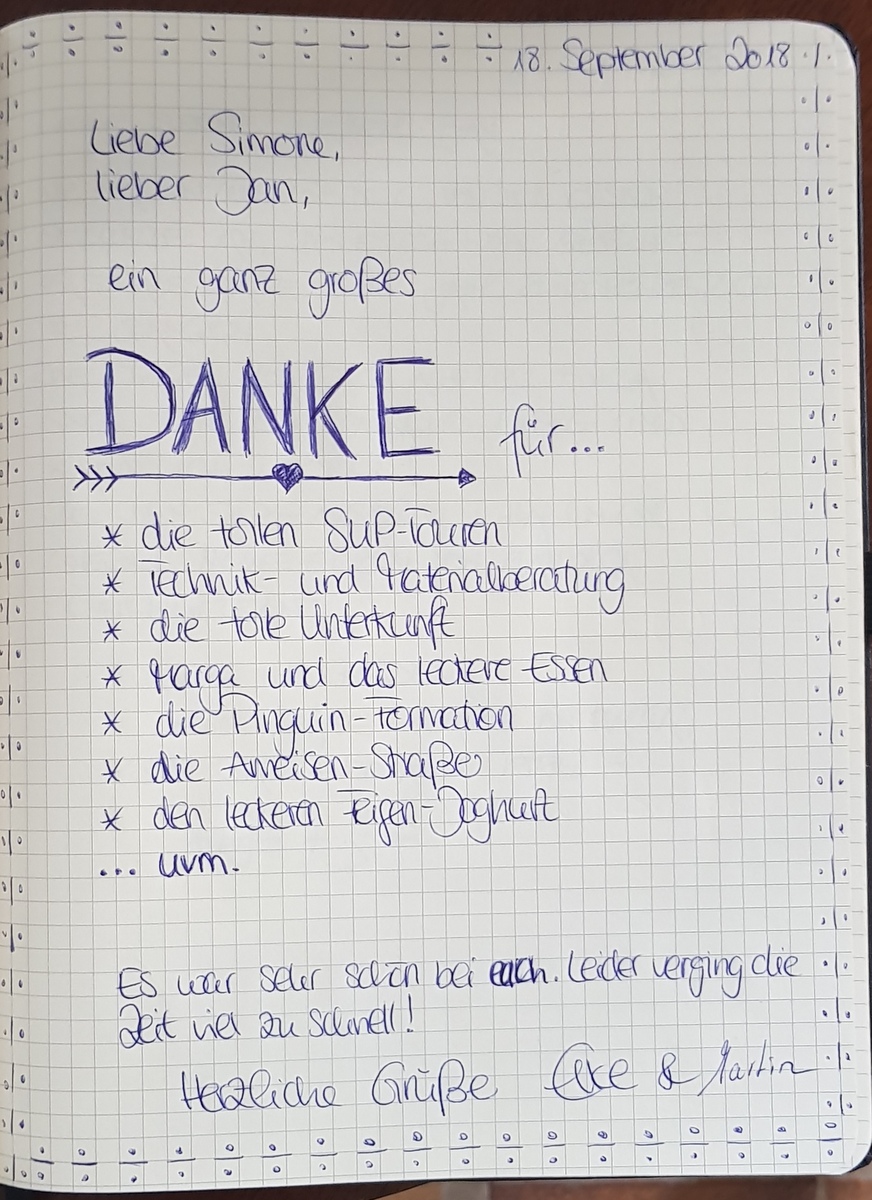 18. September 2018
Liebe Simone,
lieber Jan,
ein ganz großes
DANKE für...
* die tollen SUP-Touren
* Technik- und Materialberatung
* die tolle Unterkunft
* Marga und das leckere Essen
* die Pinguin-Formation
* die Ameisen-Straße
* den leckeren Feigen-Joghurt
... uvm.
Es war sehr schön bei euch. Leider verging die
Zeit viel zu schnell!
Herzliche Grüße & Martin